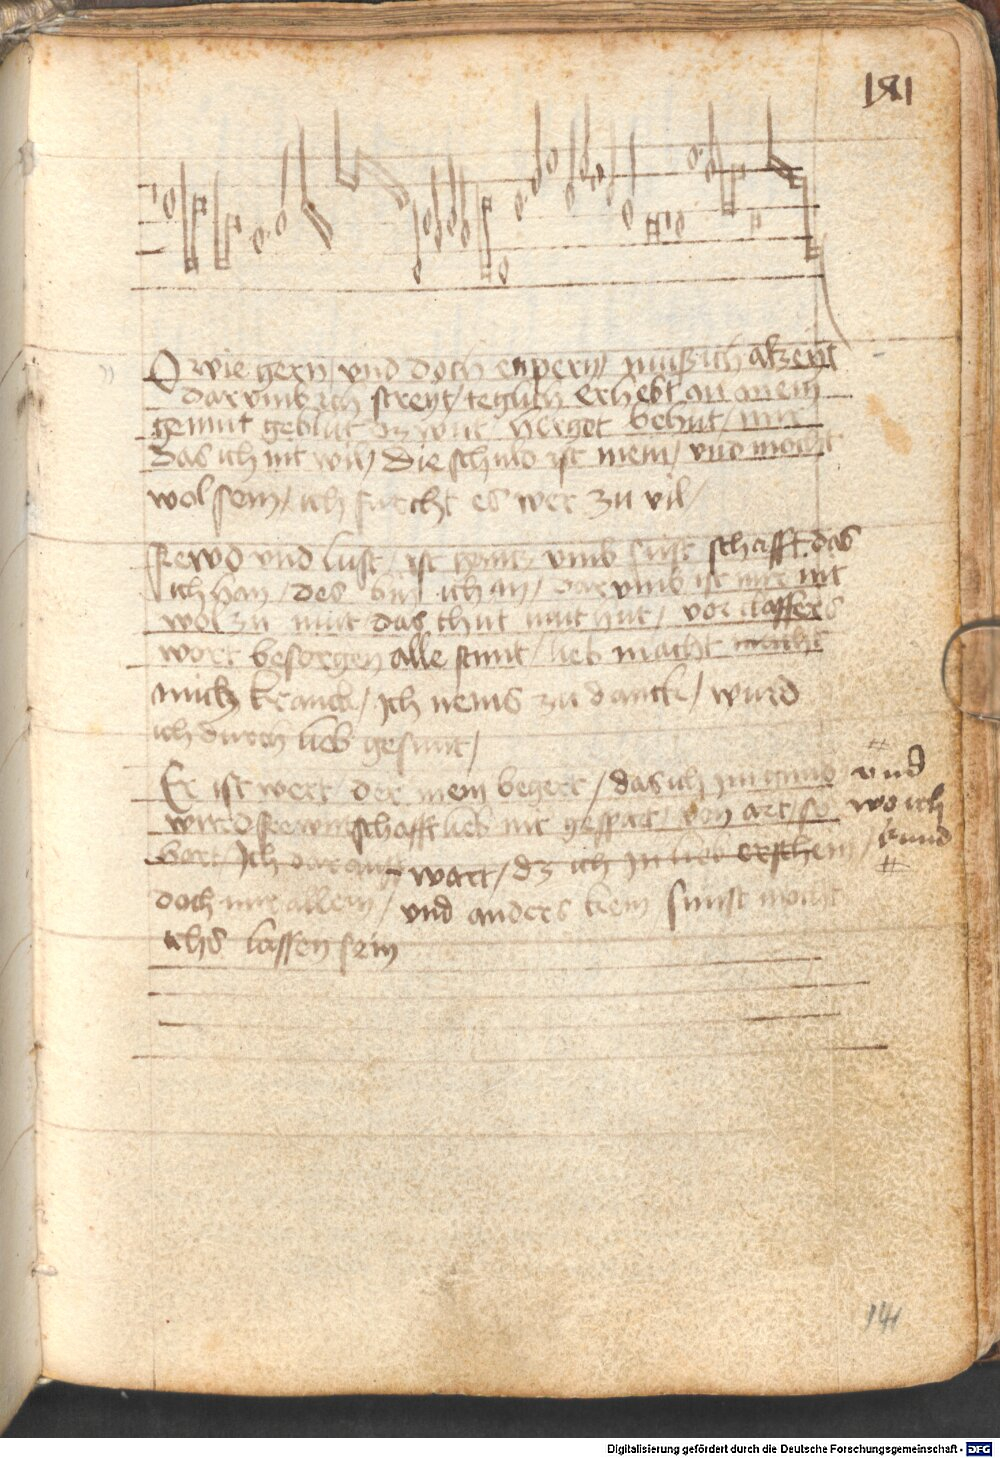 181
O wie gern / vnd doch enpern / muß ich alzeyt
darvmb ich streyt / teglich erhebt an mein
gemut geblut dz wut / herget behut / mir
das ich nit will / die schuld ist mein / vnd mocht
wol sein / ich furcht es wer zu vil /
Frewd vnd lust / ist vmb sust schafft das
ich han / des bin ich an / darvmb ist mir nit
wol zu mut das thut vor claffers
wort besorgen alle stunt / lieb macht
mich kranck / Ich nems zu danck / wurd
ich durch lieb gesunt /
Er ist wert der mein begert / das ich im gund vnd
wird frewntschafft lieb nit gespart / von art / so wo ich
hart / Ich darauff wart / dz ich in lieb erschein / kund
doch mir allein / vnd anders kein sunst mocht
ichs lassen sein
141
Digitalisierung gefördert durch die Deutsche Forschungsgemeinschaft - DFG